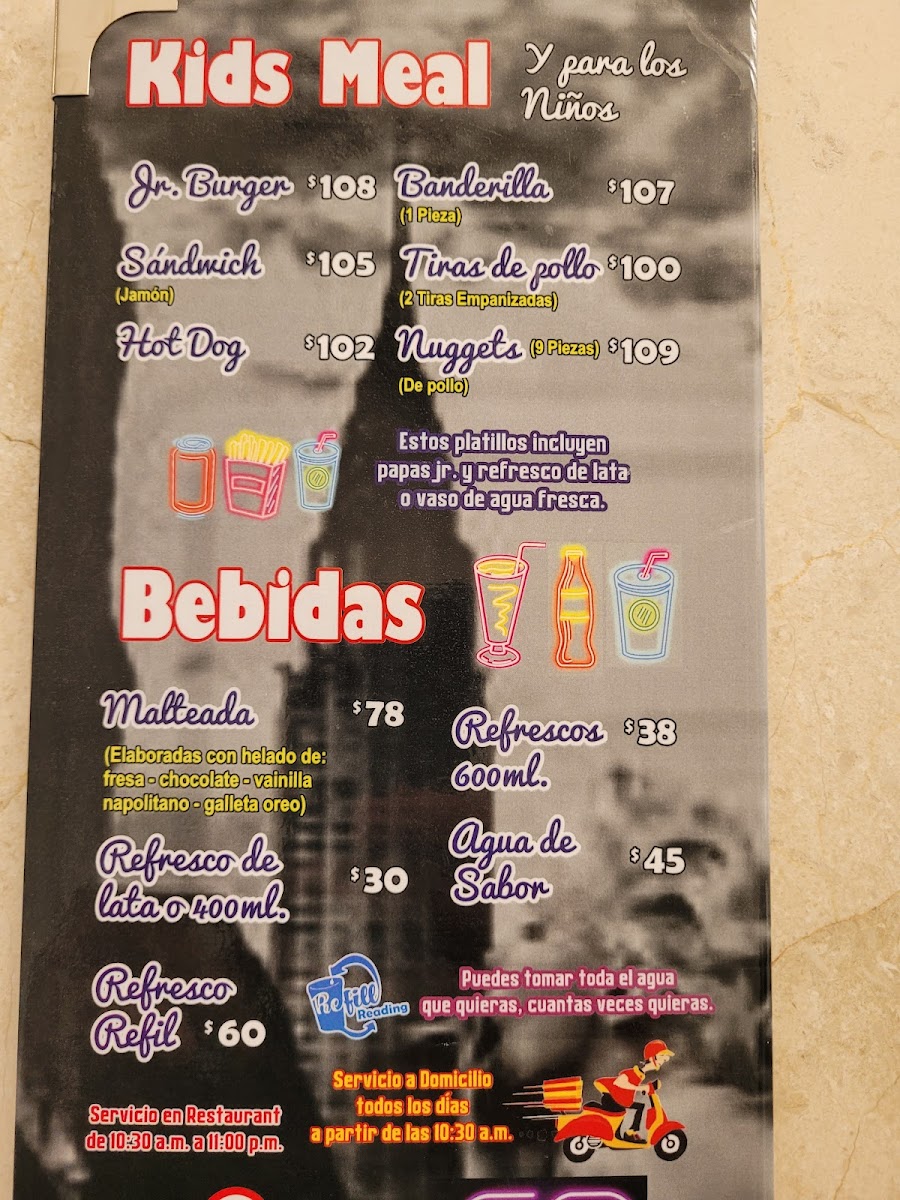 Kids Meal
Y para los
Niños
Jr. Burger $108
Banderilla $107
(1 Pieza)
Sándwich $105
(Jamón)
Tiras de pollo $100
(2 Tiras Empanizadas)
Hot Dog $102
Nuggets (9 Piezas) $109
(De pollo)
Estos platillos incluyen
papas jr. y refresco de lata
o vaso de agua fresca.
Bebidas
Malteada $78
(Elaboradas con helado de:
fresa - chocolate - vainilla
napolitano - galleta oreo)
Refrescos $38
600ml.
Refresco de
lata o 400ml. $30
Agua de
Sabor $45
Refresco
Refil $60
Refill
Reading
Puedes tomar toda el agua
que quieras, cuantas veces quieras.
Servicio a Domicilio
todos los días
a partir de las 10:30 a.m.
Servicio en Restaurant
de 10:30 a.m. a 11:00 p.m.